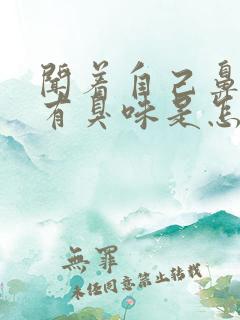 闻着自己鼻
有臭味是怎
無罪
未经同意禁止转载